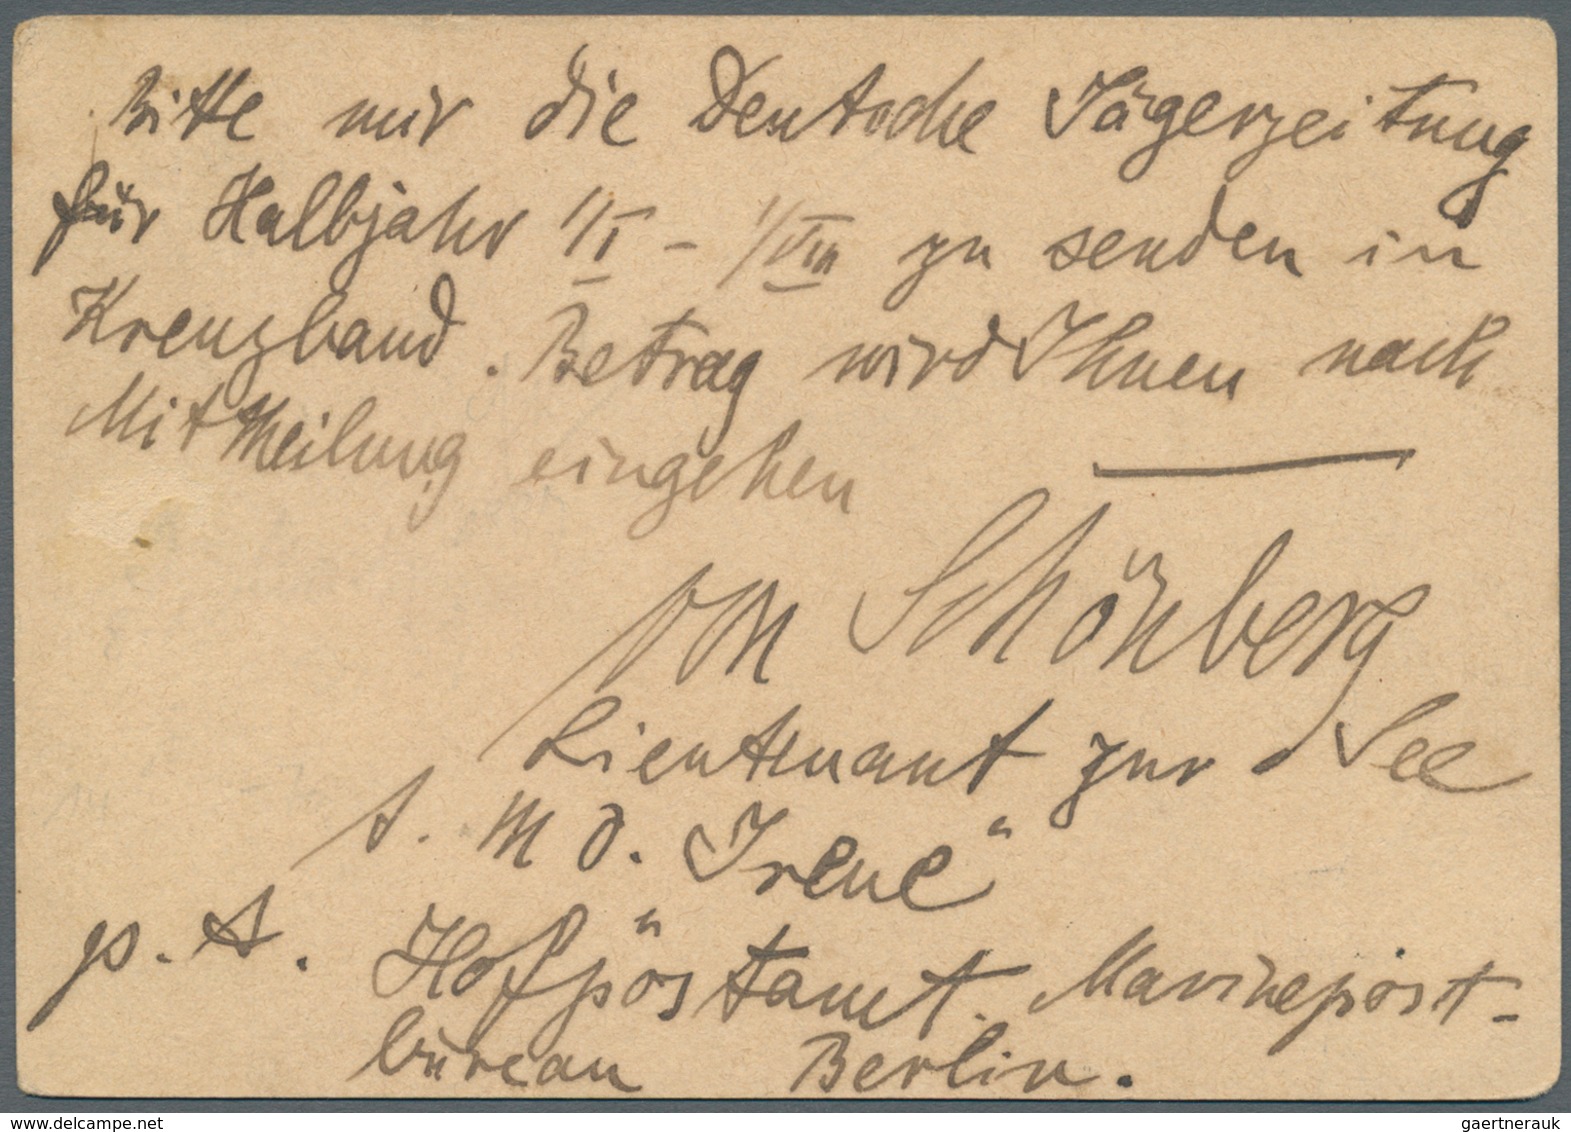 Bitte mir die Deutsche Jägerzeitung
für Halbjahr 1/I – 1/VIII zu senden in
Kreuzband. Betrag wird Ihnen nach
Mittheilung eingehen
von Schönberg
Lieutenant zur See
S. M. S. „Irene“
p. A. Hofpostamt. Marinepost-
büreau Berlin.
www.delcampe.net
gaertnerauk